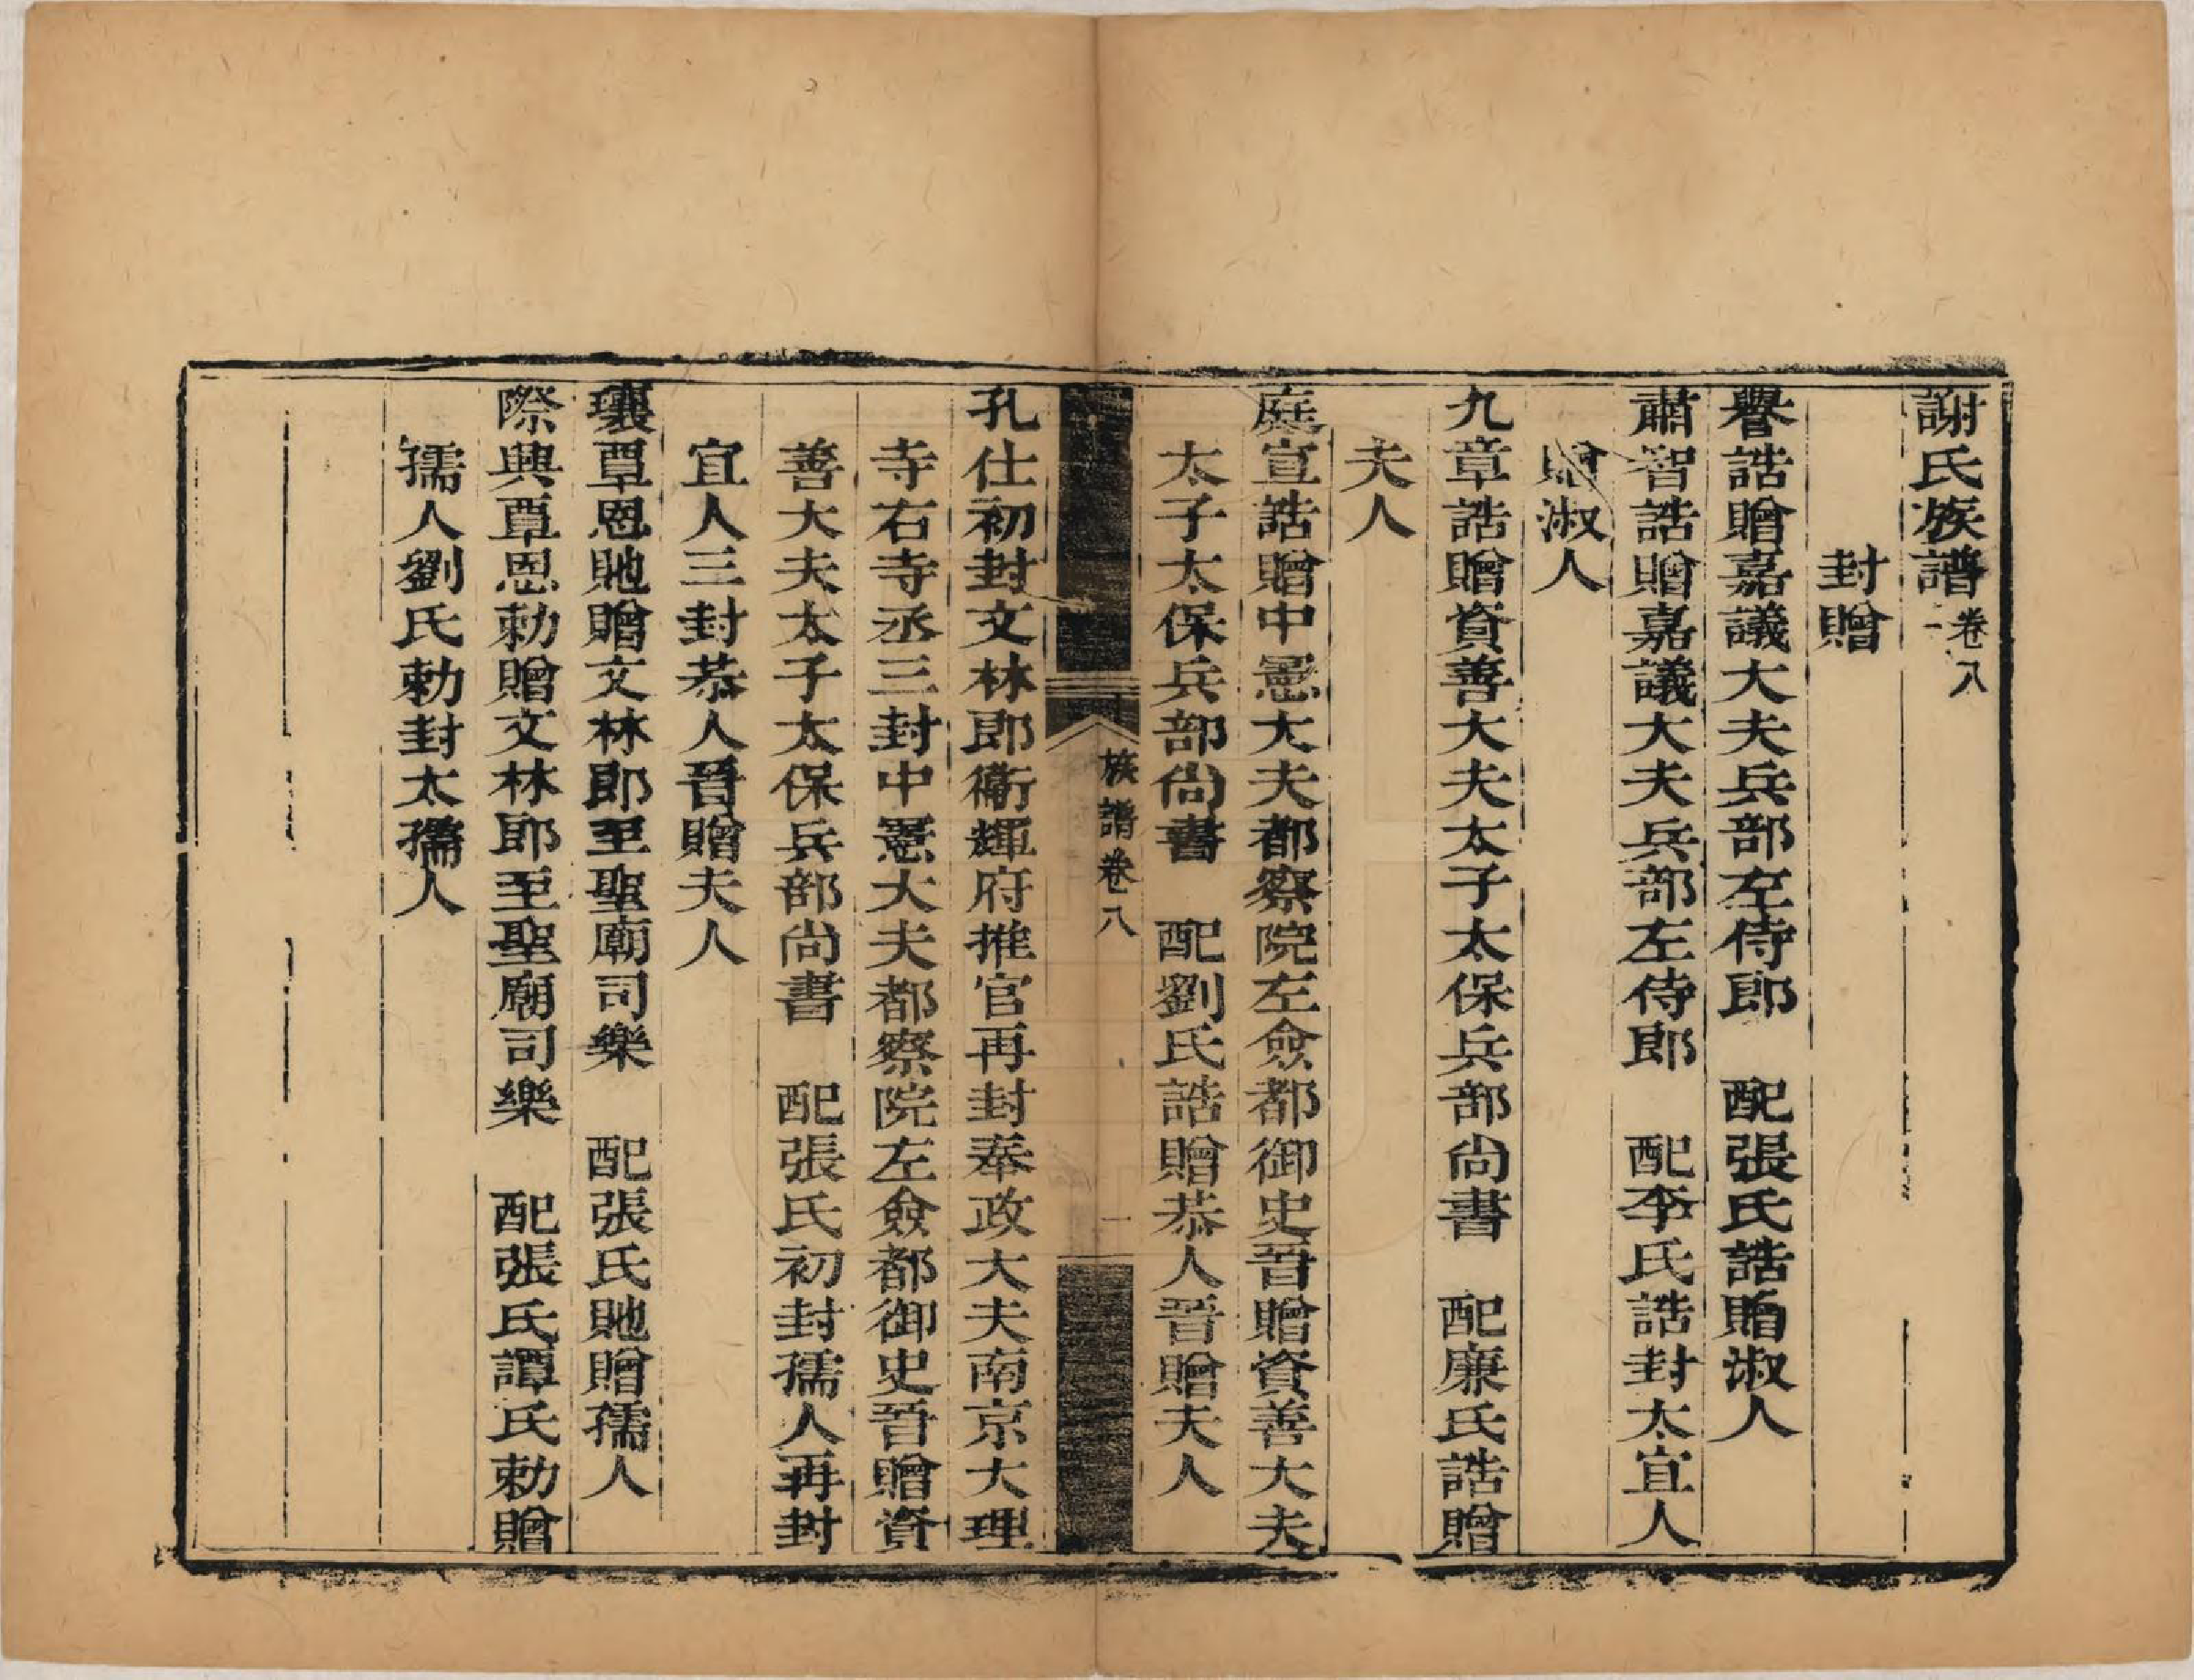 謝氏族譜卷八
封贈
譽誥贈嘉議大夫兵部左侍郎　配張氏誥贈淑人
肅智誥贈嘉議大夫兵部左侍郎　配李氏誥封太宜人
贈淑人
九章誥贈資善大夫太子太保兵部尚書　配廉氏誥贈
夫人
庭宣誥贈中憲大夫都察院左僉都御史晉贈資善大夫
太子太保兵部尚書　配劉氏誥贈恭人晉贈夫人
族譜卷八
一
孔仕初封文林郎衞輝府推官再封奉政大夫南京大理
寺右寺丞三封中憲大夫都察院左僉都御史晉贈資
善大夫太子太保兵部尚書　配張氏初封孺人再封
宜人三封恭人晉贈夫人
瓖覃恩貤贈文林郎至聖廟司樂　配張氏貤贈孺人
際興覃恩勅贈文林郎至聖廟司樂　配張氏譚氏勅贈
孺人劉氏勅封太孺人